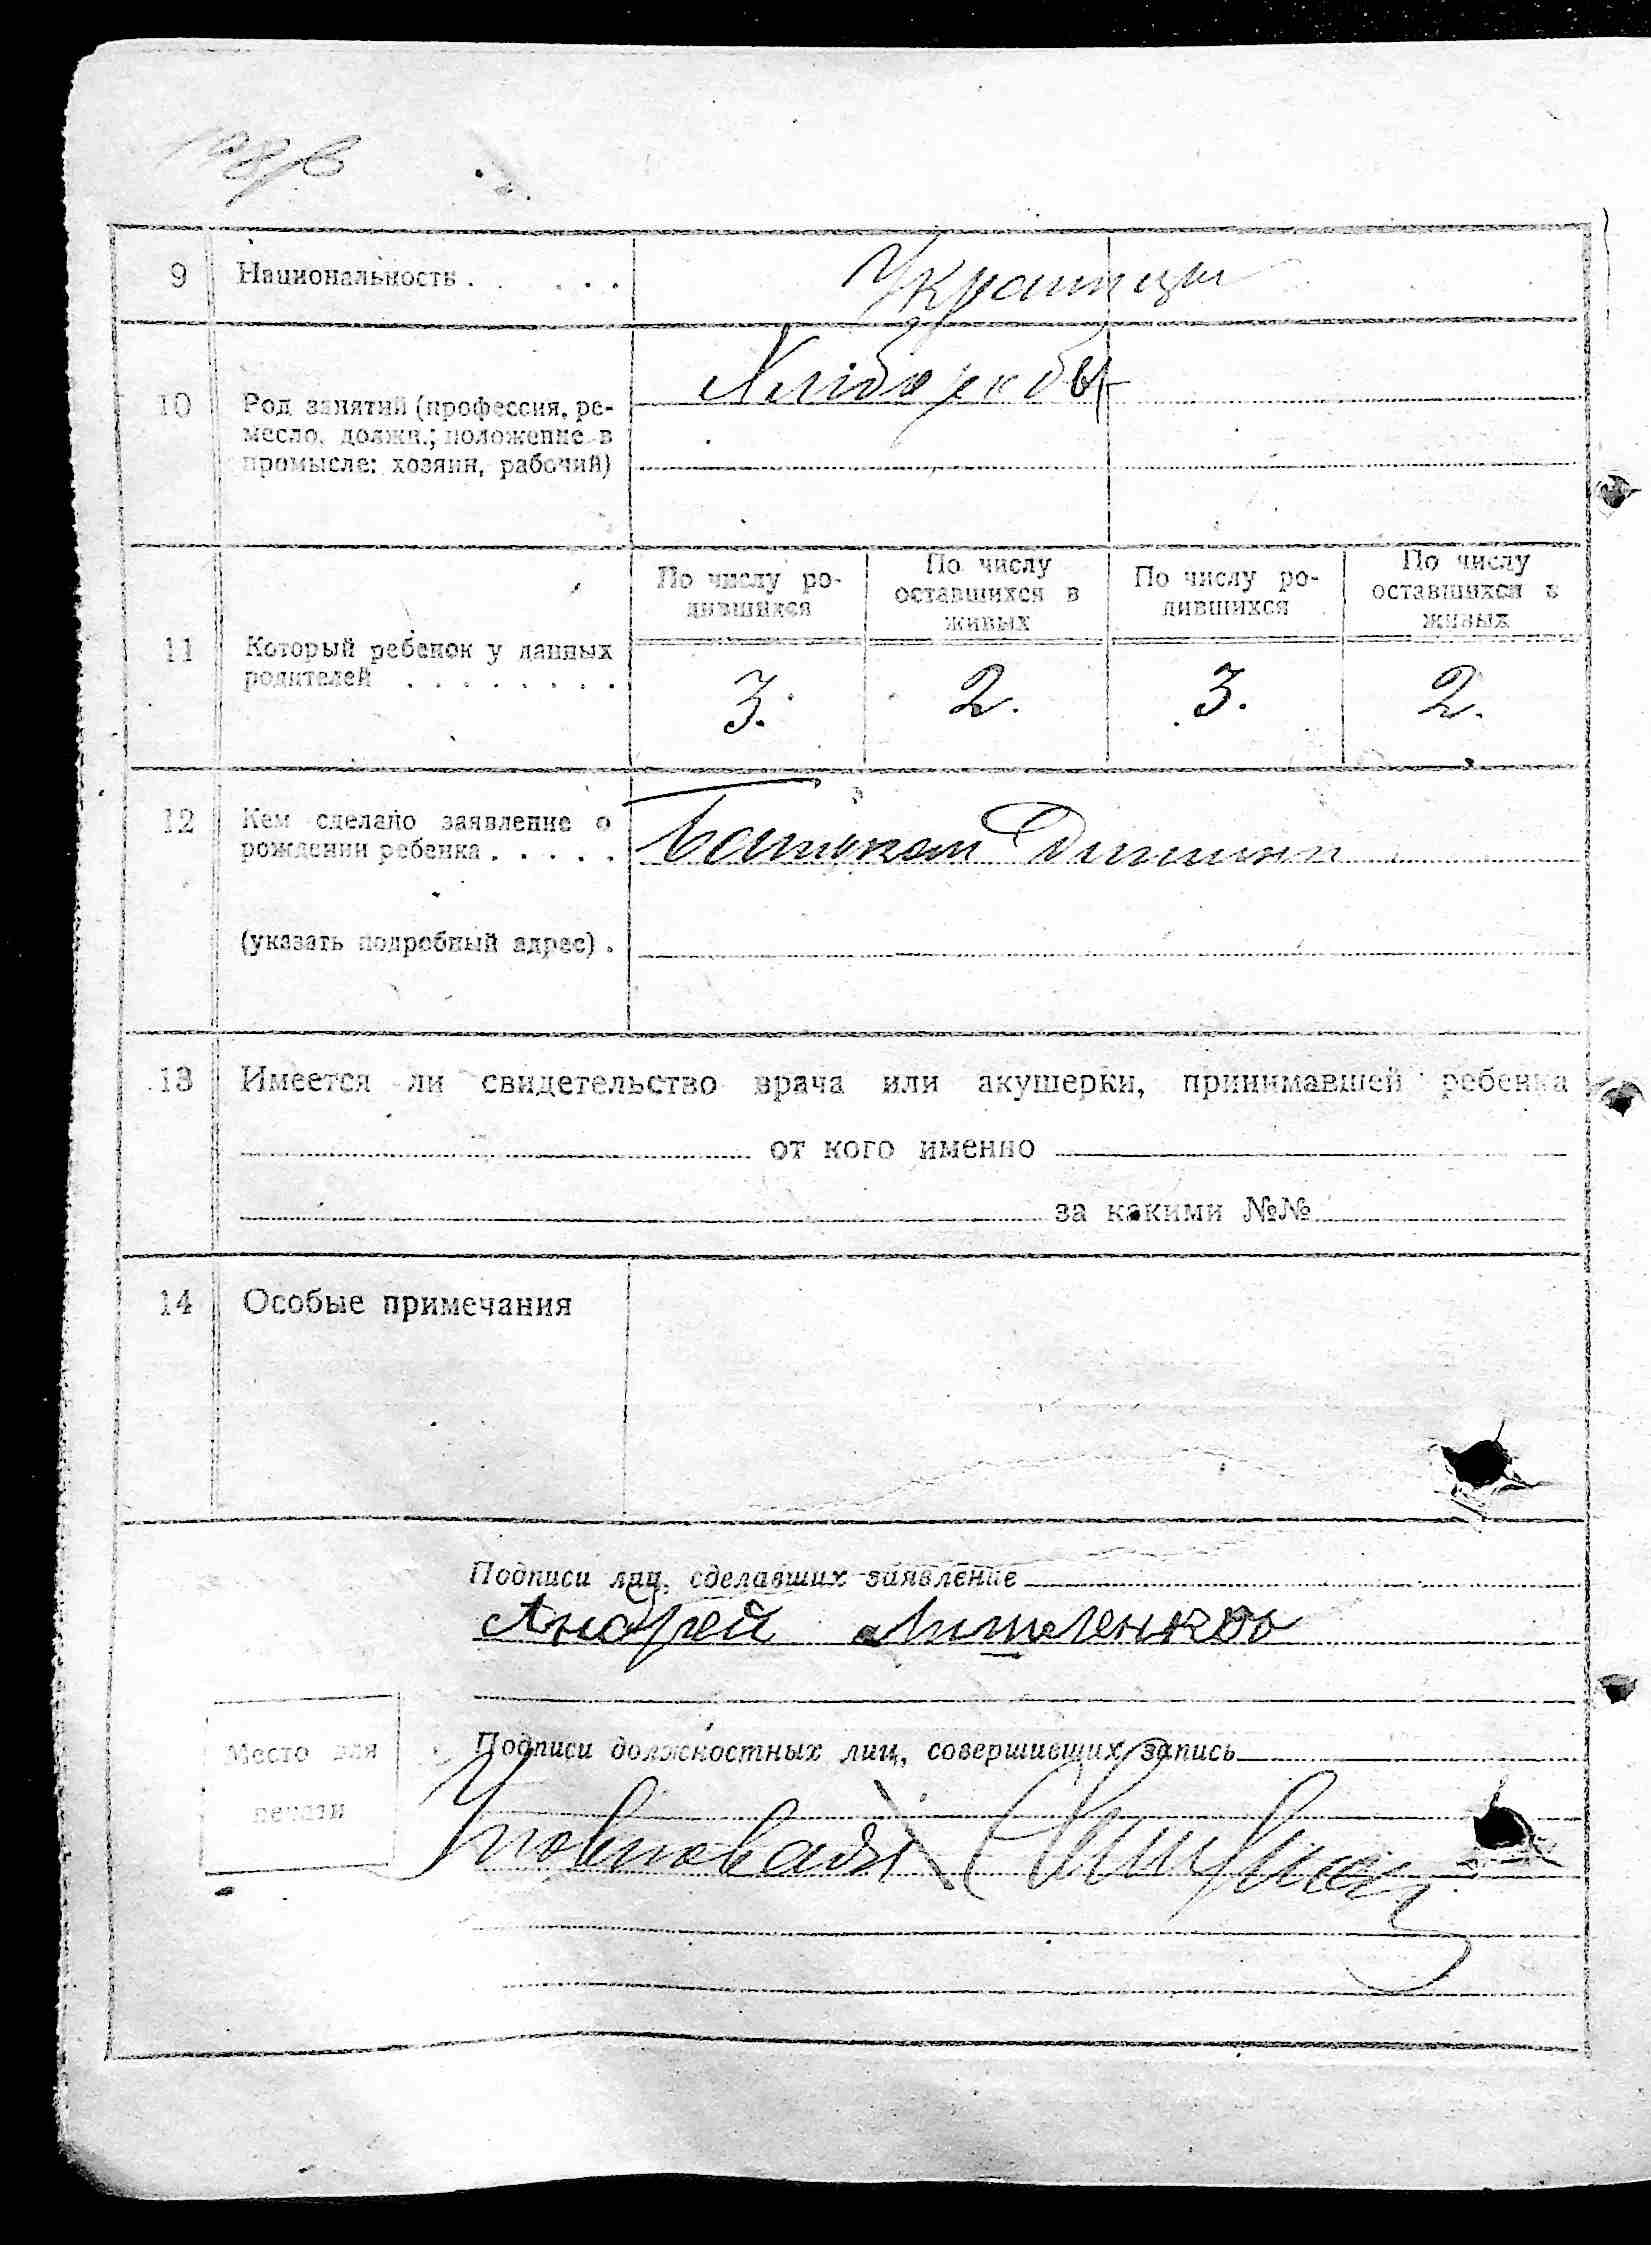 9 Национальность . . . . . . Украинцы
10 Род занятий (профессия, ре-
месло, должн.; положение в
промысле: хозяин, рабочий)
По числу ро-
дившихся
По числу
оставшихся в
живых
По числу ро-
дившихся
По числу
оставшихся в
живых
11 Который ребенок у данных
родителей . . . . . . . .
3. 2. 3. 2.
12 Кем сделано заявление о
рождении ребенка . . . . . Батьком
(указать подробный адрес) .
13 Имеется ли свидетельство врача или акушерки, принимавшей ребенка
от кого именно
за какими №№
14 Особые примечания
Подписи лиц, сделавших заявление
Андрей
Место для
печати
Подписи должностных лиц, совершивших запись